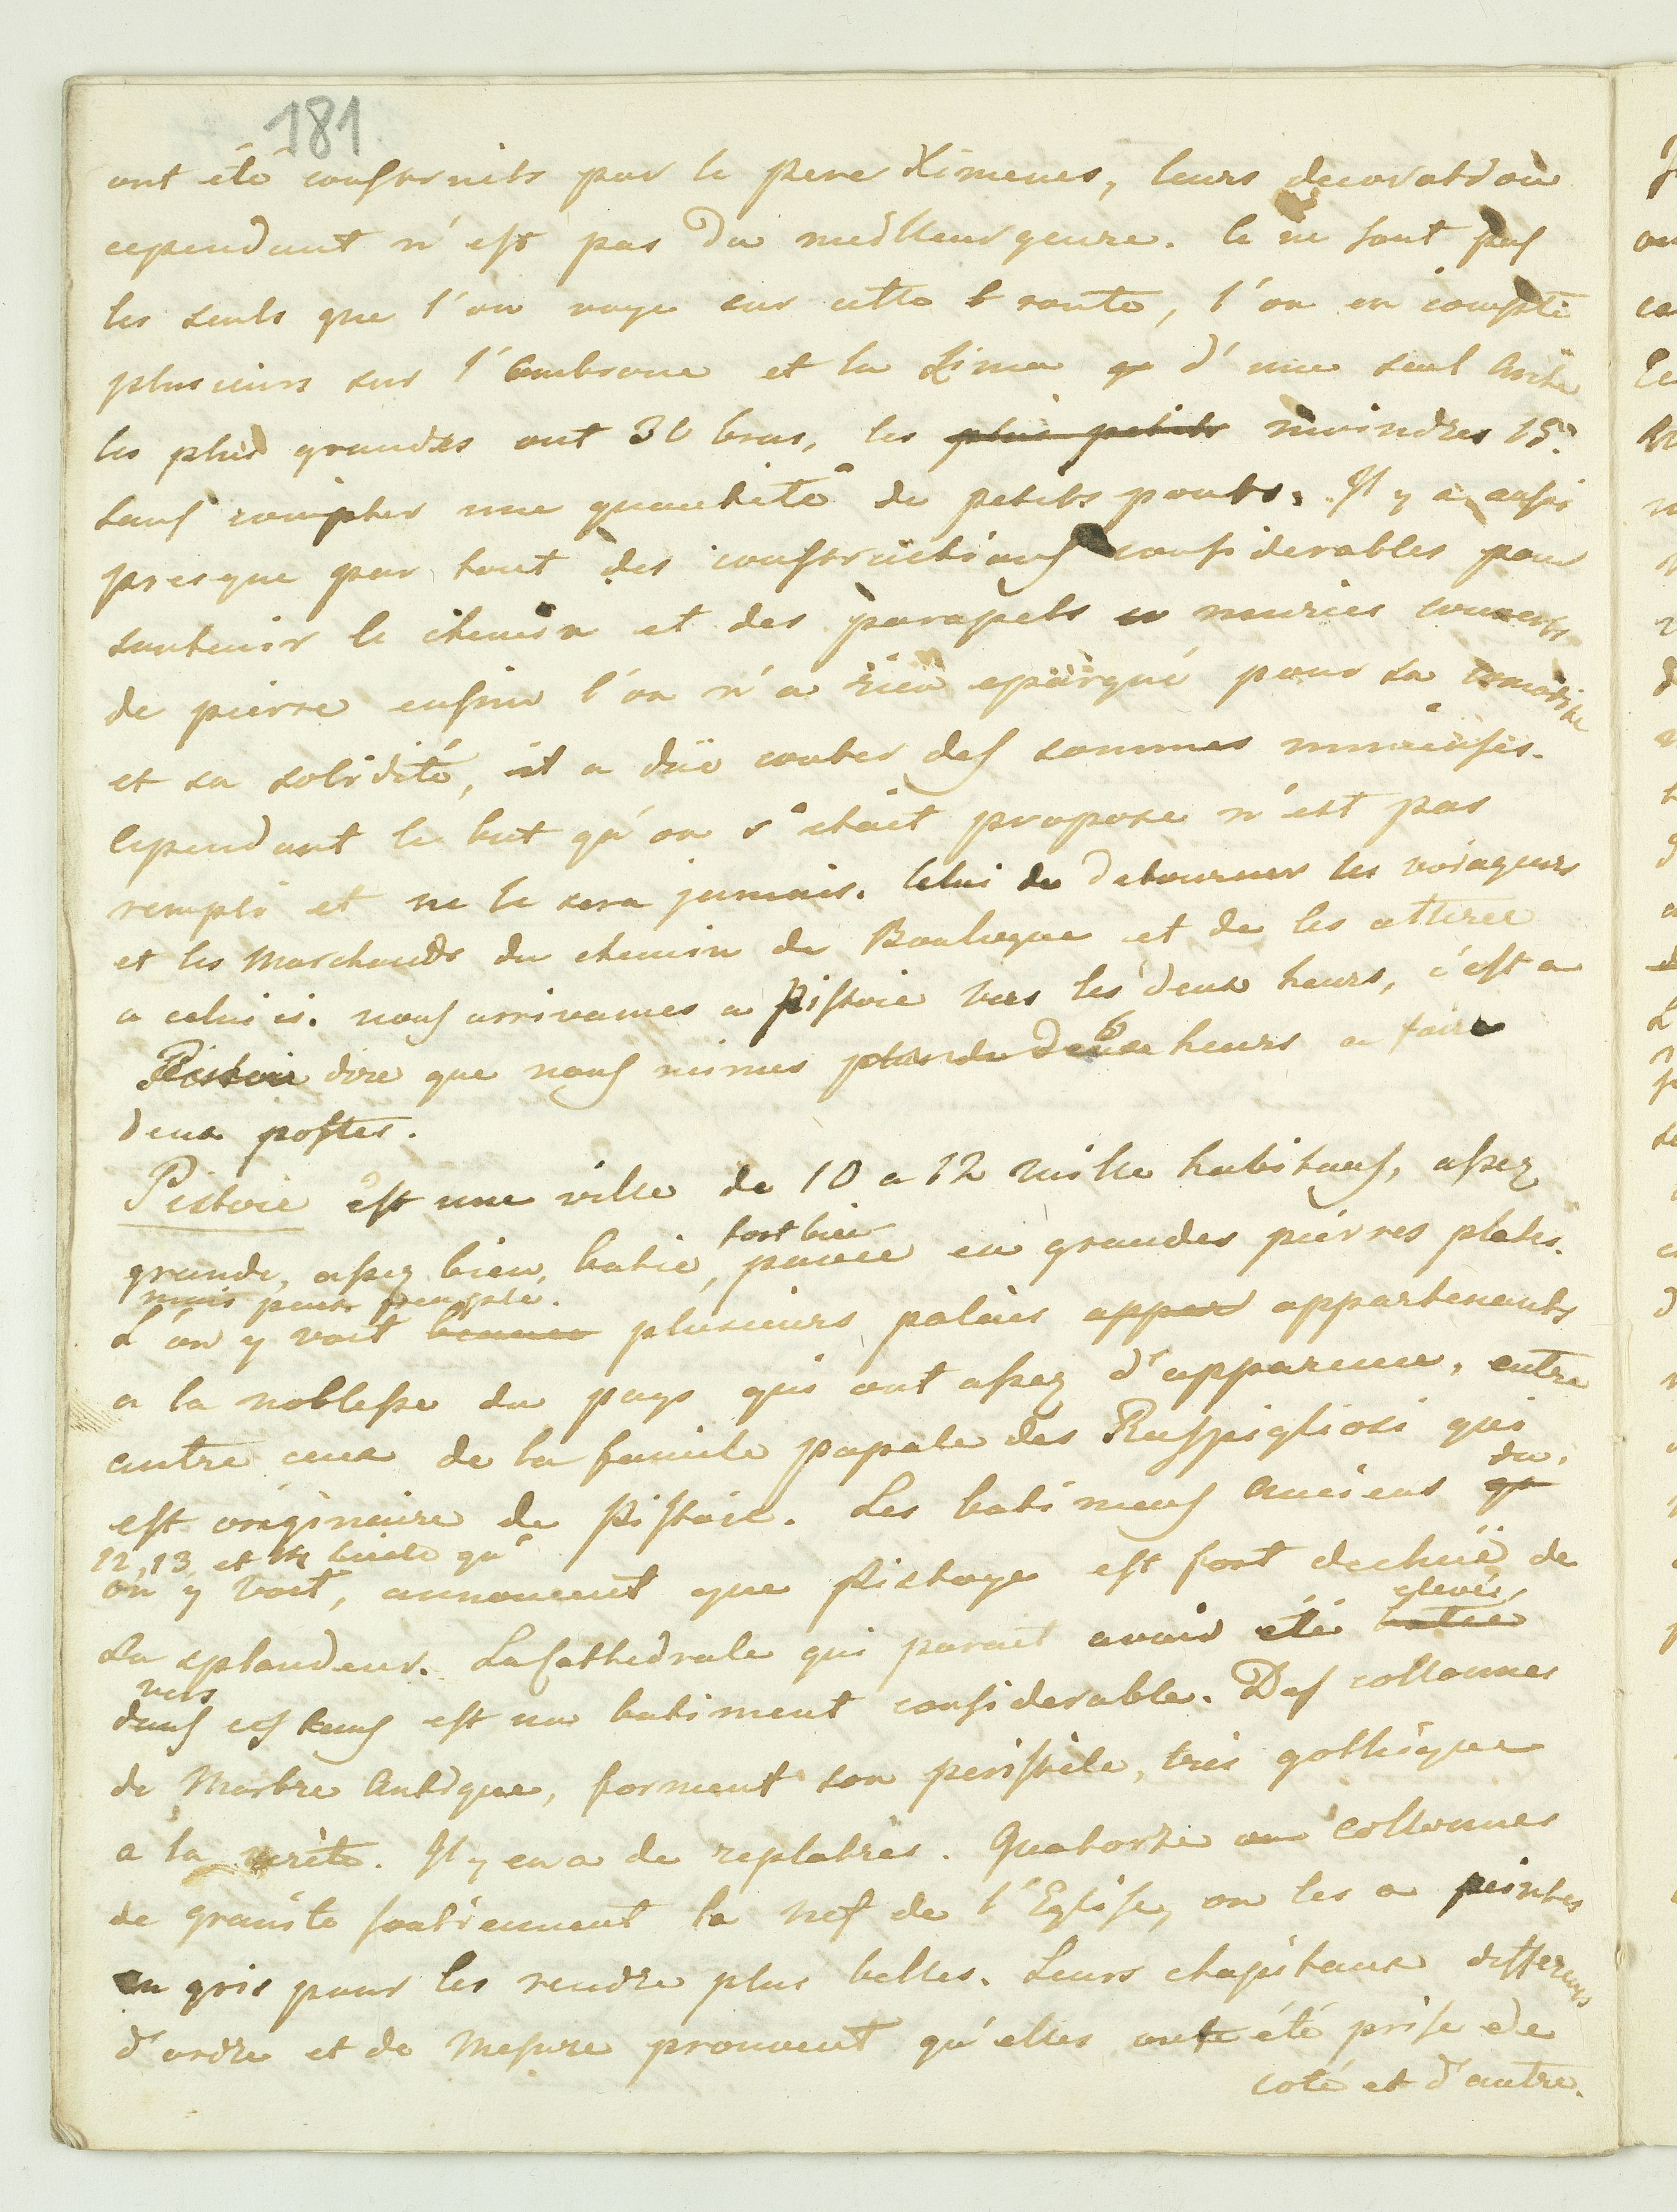 181
ont été construits par le Pere Ximenes, leurs decoration
cependant n'est pas du meilleur genre. Ce ne sont pas
les seuls que l'on voye sur cette route, l'on en compte
plusieurs sur l'Ombrone et la Lima d'une seul Arche
les plus grandes ont 30 bras, les plus petits moindres 15.
sans compter une quantité de petits ponts. Il y a aussi
presque par tout des constructions considerables pour
soutenir le chemin et des parapets en
de pierre enfin l'on n'a rien epargné pour sa comodite
et sa solidité, il a düe couter des sommes
Cependant le but qu'on s'etait propose n'est pas
rempli et ne le sera jamais. Celui de detourner les voiageurs
et les Marchands du chemin de Boulogne et de les attirer
a celui ci. nous arrivames a Pistoie vers les deux heures, c'est a
Pistoie dire que nous mimes plus de deux 6 heures a faire
deux postes.
Pistoie est une ville de 10 a 12 mille habitans, assez
grande, assez bien batie, fort bien pavée en grandes pierres plates.
mais peu peuplé.
L'on y voit plusieurs palais appar appartenants
a la noblesse du pays qui ont assez d'apparence, entre
autre ceux de la famile papale des Ruspigliosi qui
est originaire de Pistoie. Les batimens anciens du
12, 13 et 14 siecle qu'
on y voit, annoncent que Pistoye est fort dechüe de
sa splandeur. La Cathedrale qui parait avoir été batie elevée
dans vers ces tems est un batiment considerable. Des collonnes
de Marbre Antique, forment son peristile, tres gothique
a la verité. Il y en a de replatrés. Quatorze collonnes
de granite soutiennent la nef de l'Eglise, on les a peintes
en gris pour les rendre plus belles. Leurs chapitaux differents
d'ordre et de Mesure prouvent qu'elles ont été prise de
coté et d'autre.